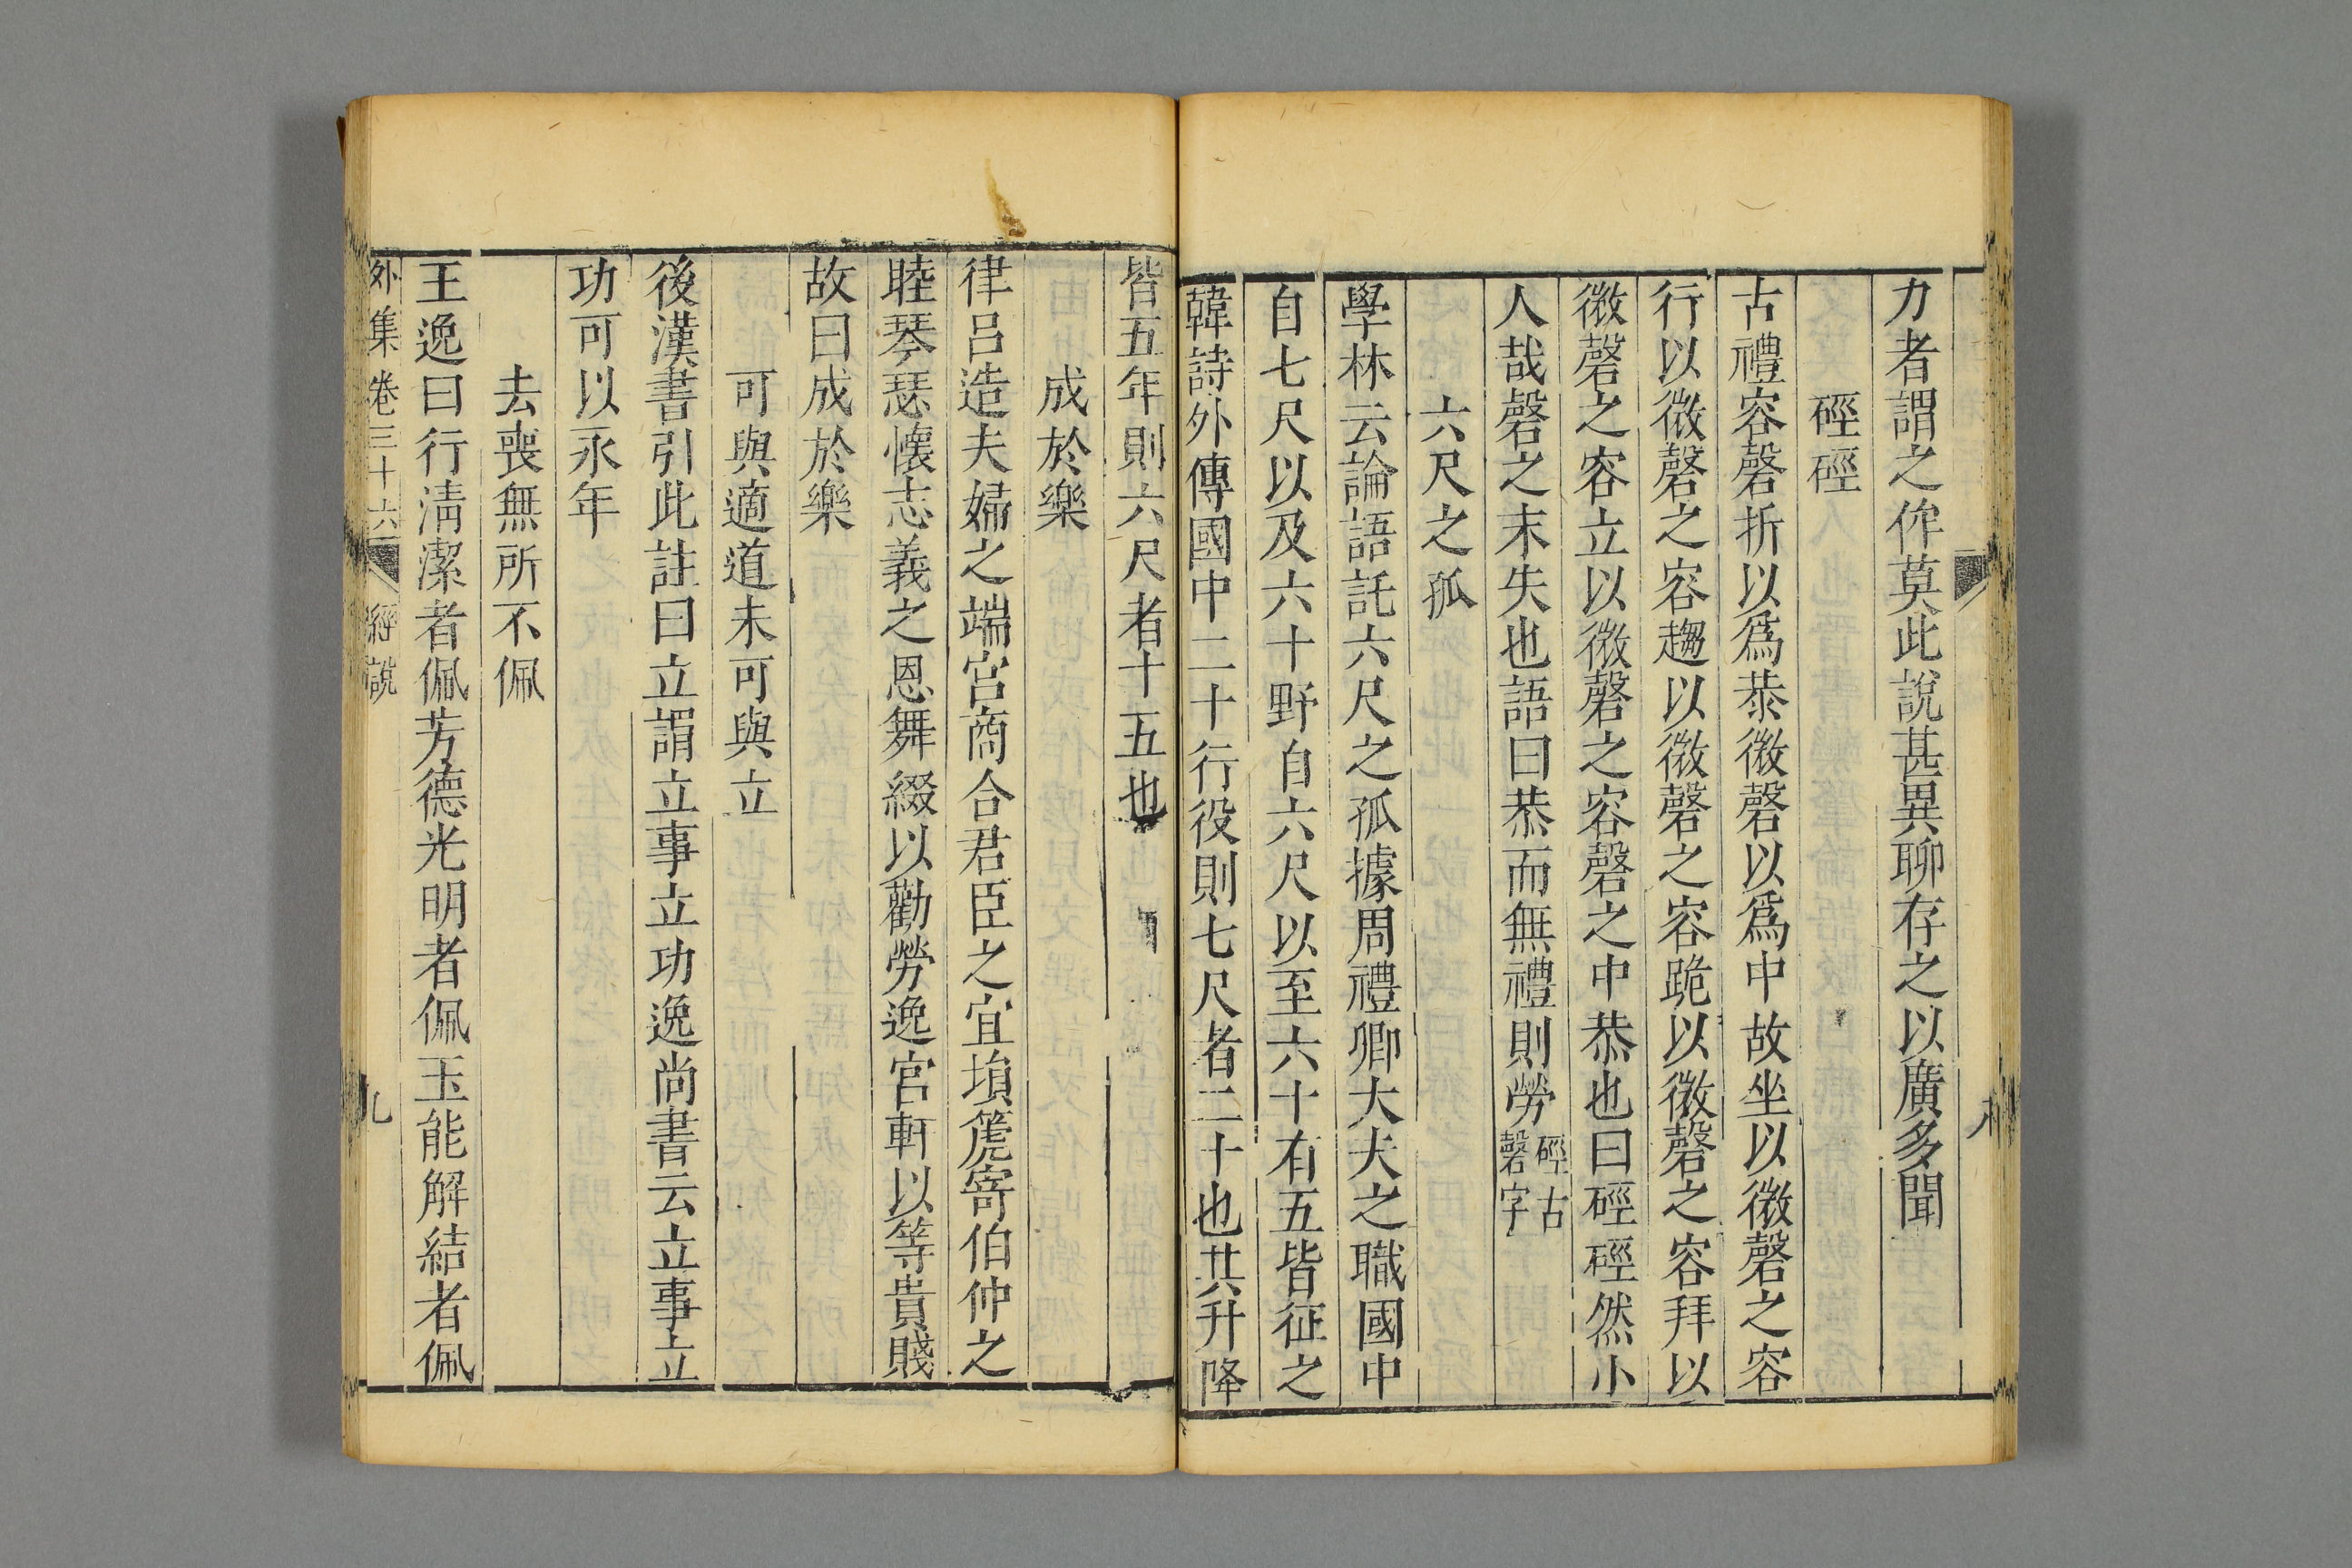 力者謂之侔莫此說甚異聊存之以廣多聞
硜硜
古禮容磬折以爲恭微磬以爲中故坐以微磬之容
行以微磬之容趨以微磬之容跪以微磬之容拜以
微磬之容立以微磬之容磬之中恭也曰硜硜然小
人哉磬之末失也語曰恭而無禮則勞硜古磬字
六尺之孤
學林云論語託六尺之孤據周禮鄉大夫之職國中
自七尺以及六十野自六尺以至六十有五皆征之
韓詩外傳國中二十行役則七尺者二十也其升降
皆五年則六尺者十五也
成於樂
律呂造夫婦之端宮商合君臣之宜塤篪寄伯仲之
睦琴瑟懷志義之恩舞綴以勸勞逸宮軒以等貴賤
故曰成於樂
可與適道未可與立
後漢書引此註曰立謂立事立功逸尚書云立事立
功可以永年
去喪無所不佩
王逸曰行淸潔者佩芳德光明者佩玉能解結者佩
外集卷三十六 經說 九